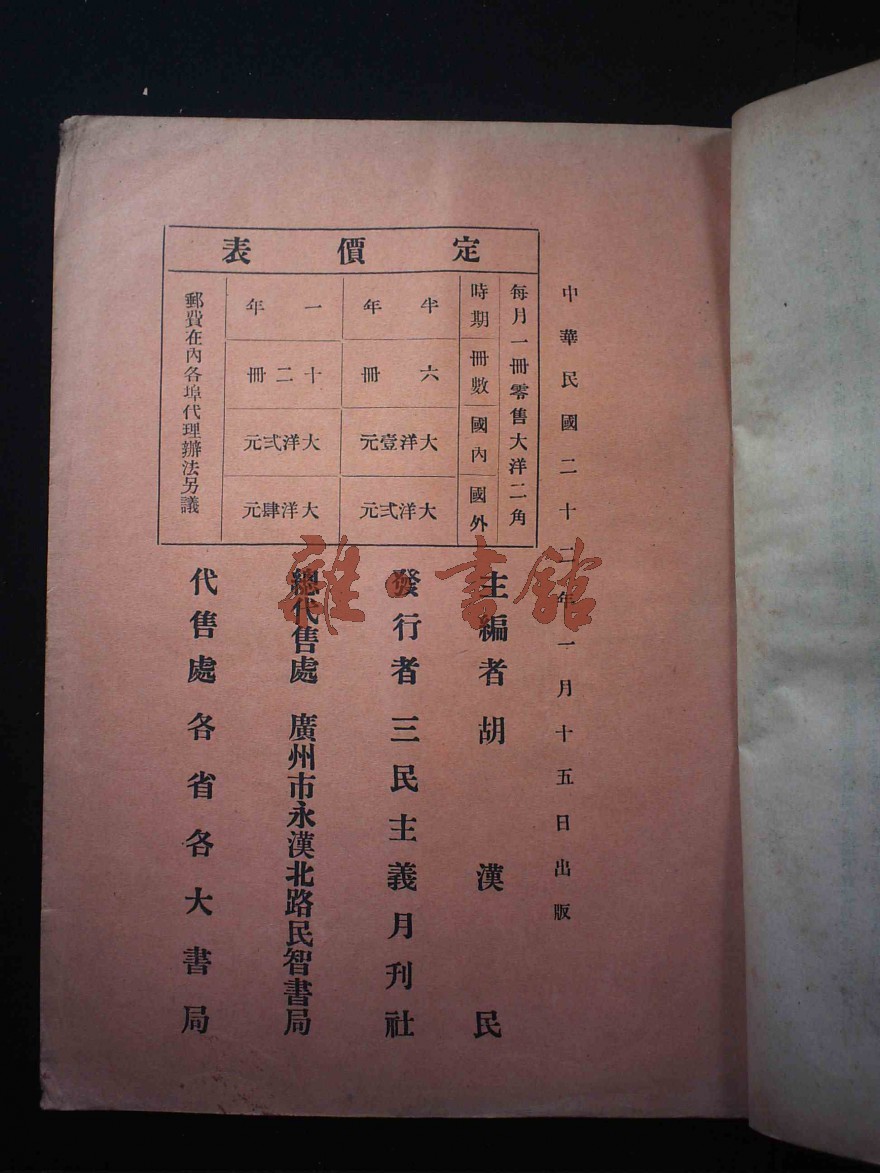 中華民國二十二年一月十五日出版
定價表
每月一冊零售大洋二角
時期 冊數 國內 國外
半年 六冊 大洋壹元 大洋弍元
一年 十二冊 大洋弍元 大洋肆元
郵費在內各埠代理辦法另議
主編者 胡漢民
發行者 三民主義月刊社
總代售處 廣州市永漢北路民智書局
代售處 各省各大書局
雜·書館